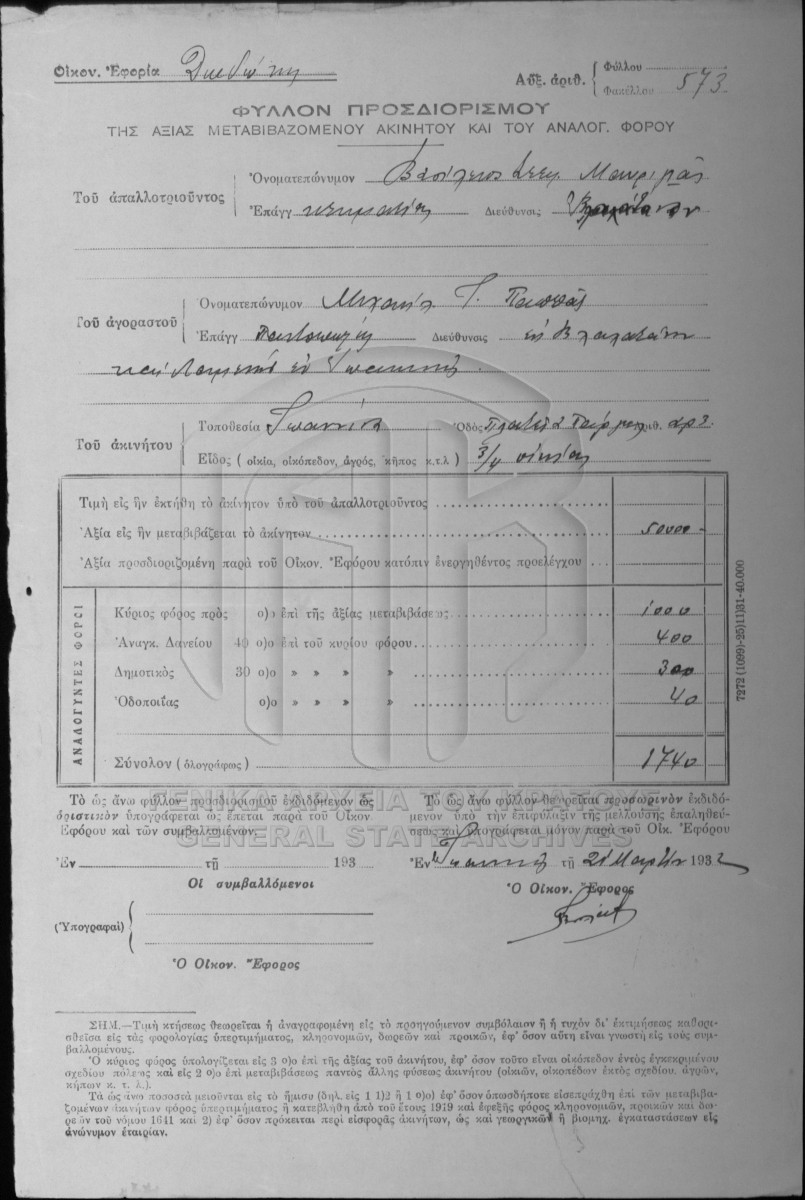 Οἰκον. Ἐφορία Δωδώνης
Αὔξ. ἀριθ. { Φύλλου
Φακέλλου 573.
ΦΥΛΛΟΝ ΠΡΟΣΔΙΟΡΙΣΜΟΥ
ΤΗΣ ΑΞΙΑΣ ΜΕΤΑΒΙΒΑΖΟΜΕΝΟΥ ΑΚΙΝΗΤΟΥ ΚΑΙ ΤΟΥ ΑΝΑΛΟΓ. ΦΟΡΟΥ
Τοῦ ἀπαλλοτριοῦντος
Ὀνοματεπώνυμον Βασίλειος
Ἐπάγγ κτηματίας Διεύθυνσις
Τοῦ ἀγοραστοῦ
Ὀνοματεπώνυμον Μιχαήλ Γ. Παππᾶς
Ἐπάγγ Παντοπώλης Διεύθυνσις ἐν
καὶ ἐν Ἰωαννίνοις.
Τοῦ ἀκινήτου
Τοποθεσία Ἰωάννινα Ὁδὸς Πλατεῖα ἀριθ.
Εἶδος ( οἰκία, οἰκόπεδον, ἀγρός, κῆπος κ.τ.λ ) 3/4 οἰκίας
Τιμὴ εἰς ἣν ἐκτήθη τὸ ἀκίνητον ὑπὸ τοῦ ἀπαλλοτριοῦντος
Ἀξία εἰς ἣν μεταβιβάζεται τὸ ἀκίνητον 50000 -
Ἀξία προσδιοριζομένη παρὰ τοῦ Οἰκον. Ἐφόρου κατόπιν ἐνεργηθέντος προελέγχου
ΑΝΑΛΟΓΟΥΝΤΕΣ ΦΟΡΟΙ
Κύριος φόρος πρὸς ο)ο ἐπὶ τῆς ἀξίας μεταβιβάσεως 1000
Ἀναγκ. Δανείου 40 ο)ο ἐπὶ τοῦ κυρίου φόρου 400
Δημοτικὸς 30 ο)ο » » » » 300
Ὁδοποιΐας ο)ο » » » » 40
Σύνολον ( ὁλογράφως ) 1740
7272 (1099)-25)11)31-40.000
ΓΕΝΙΚΑ ΑΡΧΕΙΑ ΤΟΥ ΚΡΑΤΟΥΣ
GENERAL STATE ARCHIVES
Τὸ ὡς ἄνω φύλλον προσδιορισμοῦ ἐκδιδόμενον ὡς
ὁριστικὸν ὑπογράφεται ὡς ἕπεται παρὰ τοῦ Οἰκον
Ἐφόρου καὶ τῶν συμβαλλομένων.
Ἐν τῇ 193
Οἱ συμβαλλόμενοι
(Ὑπογραφαὶ)
Ὁ Οἰκον. Ἔφορος
Τὸ ὡς ἄνω φύλλον θεωρεῖται προσωρινὸν ἐκδιδό-
μενον ὑπὸ τὴν ἐπιφύλαξιν τῆς μελλούσης ἐπαληθεύ-
σεως καὶ ὑπογράφεται μόνον παρὰ τοῦ Οἰκ. Ἐφόρου
Ἐν Ἰωαννίνοις τῇ 21 Μαρτίου 1932
Ὁ Οἰκον. Ἔφορος
ΣΗΜ.—Τιμὴ κτήσεως θεωρεῖται ἡ ἀναγραφομένη εἰς τὸ προηγούμενον συμβόλαιον ἢ ἡ τυχὸν δι' ἐκτιμήσεως καθορι-
σθεῖσα εἰς τὰς φορολογίας ὑπερτιμήματος, κληρονομιῶν, δωρεῶν καὶ προικῶν, ἐφ' ὅσον αὕτη εἶναι γνωστὴ εἰς τοὺς συμ-
βαλλομένους.
Ὁ κύριος φόρος ὑπολογίζεται εἰς 3 ο)ο ἐπὶ τῆς ἀξίας τοῦ ἀκινήτου, ἐφ' ὅσον τοῦτο εἶναι οἰκόπεδον ἐντὸς ἐγκεκριμένου
σχεδίου πόλεως καὶ εἰς 2 ο)ο ἐπὶ μεταβιβάσεως παντὸς ἄλλης φύσεως ἀκινήτου (οἰκιῶν, οἰκοπέδων ἐκτὸς σχεδίου, ἀγρῶν,
κήπων κ. τ. λ.).
Τὰ ὡς ἄνω ποσοστὰ μειοῦνται εἰς τὸ ἥμισυ (δηλ. εἰς 1 1)2 ἢ 1 ο)ο) ἐφ' ὅσον ὁπωσδήποτε εἰσεπράχθη ἐπὶ τῶν μεταβιβα-
ζομένων ἀκινήτων φόρος ὑπερτιμήματος ἢ κατεβλήθη ἀπὸ τοῦ ἔτους 1919 καὶ ἐφεξῆς φόρος κληρονομιῶν, προικῶν καὶ δω-
ρεῶν τοῦ νόμου 1641 καὶ 2) ἐφ' ὅσον πρόκειται περὶ εἰσφορᾶς ἀκινήτων, ὡς καὶ γεωργικῶν ἢ βιομηχ. ἐγκαταστάσεων εἰς
ἀνώνυμον ἑταιρίαν.